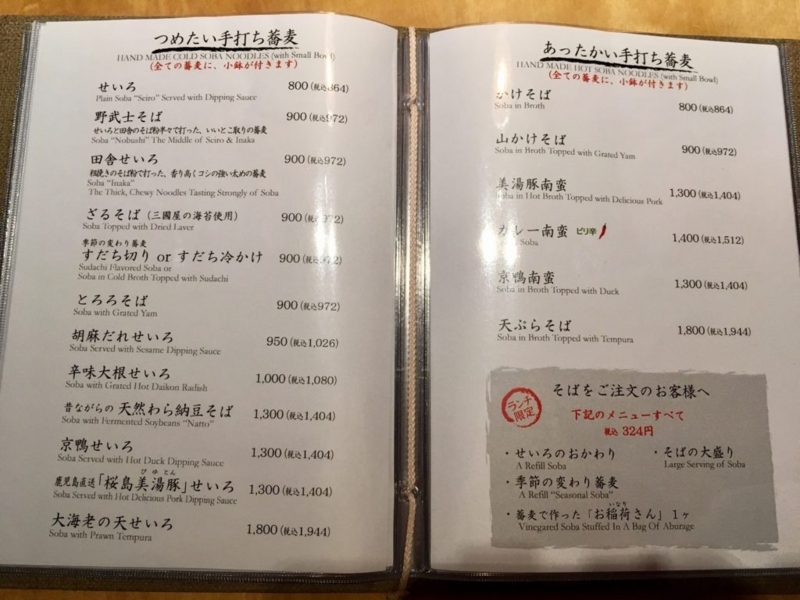 つめたい手打ち蕎麦
HAND MADE COLD SOBA NOODLES (with Small Bowl)
(全ての蕎麦に、小鉢が付きます)
せいろ 800 (税込864)
Plain Soba "Seiro" Served with Dipping Sauce
野武士そば 900 (税込972)
せいろと田舎のそば粉半々で打った、いいとこ取りの蕎麦
Soba "Nobushi" The Middle of Seiro & Inaka
田舎せいろ 900 (税込972)
粗挽きのそば粉で打った、香り高くコシの強い太めの蕎麦
Soba "Inaka"
The Thick, Chewy Noodles Tasting Strongly of Soba
ざるそば (三國屋の海苔使用) 900 (税込972)
Soba Topped with Dried Laver
季節の変わり蕎麦
すだち切り or すだち冷かけ 900 (税込972)
Sudachi Flavored Soba or
Soba in Cold Broth Topped with Sudachi
とろろそば 900 (税込972)
Soba with Grated Yam
胡麻だれせいろ 950 (税込1,026)
Soba Served with Sesame Dipping Sauce
辛味大根せいろ 1,000 (税込1,080)
Soba with Grated Hot Daikon Radish
昔ながらの 天然わら納豆そば 1,300 (税込1,404)
Soba with Fermented Soybeans "Natto"
京鴨せいろ 1,300 (税込1,404)
Soba Served with Hot Duck Dipping Sauce
びゆとん
鹿児島直送「桜島美湯豚」せいろ 1,300 (税込1,404)
Soba Served with Hot Delicious Pork Dipping Sauce
大海老の天せいろ 1,800 (税込1,944)
Soba with Prawn Tempura
あったかい手打ち蕎麦
HAND MADE HOT SOBA NOODLES (with Small Bowl)
(全ての蕎麦に、小鉢が付きます)
かけそば 800 (税込864)
Soba in Broth
山かけそば 900 (税込972)
Soba in Broth Topped with Grated Yam
美湯豚南蛮 1,300 (税込1,404)
Soba in Hot Broth Topped with Delicious Pork
カレー南蛮 ピリ辛 1,400 (税込1,512)
Soba
京鴨南蛮 1,300 (税込1,404)
Soba in Broth Topped with Duck
天ぷらそば 1,800 (税込1,944)
Soba in Broth Topped with Tempura
ランチ限定
そばをご注文のお客様へ
下記のメニューすべて
税込 324円
・せいろのおかわり ・そばの大盛り
A Refill Soba Large Serving of Soba
・季節の変わり蕎麦
A Refill "Seasonal Soba"
いなり
・蕎麦で作った「お稲荷さん」1ヶ
Vinegared Soba Stuffed In A Bag Of Aburage